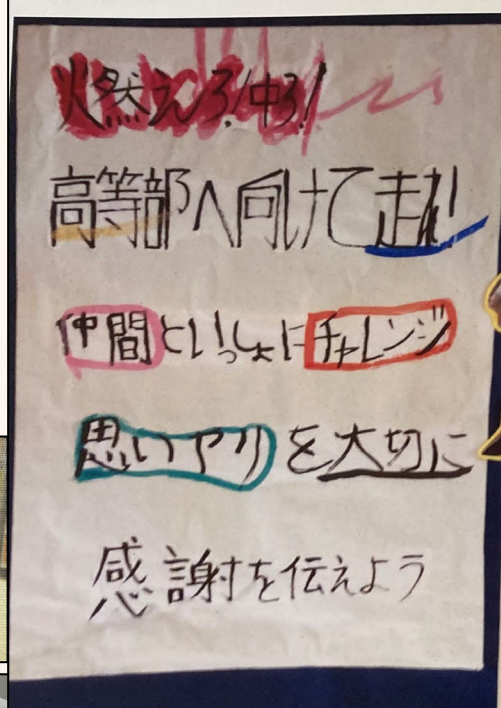 燃えろ!中3!
高等部へ向けて走れ!
仲間といっしょにチャレンジ
思いやりを大切に
感謝を伝えよう